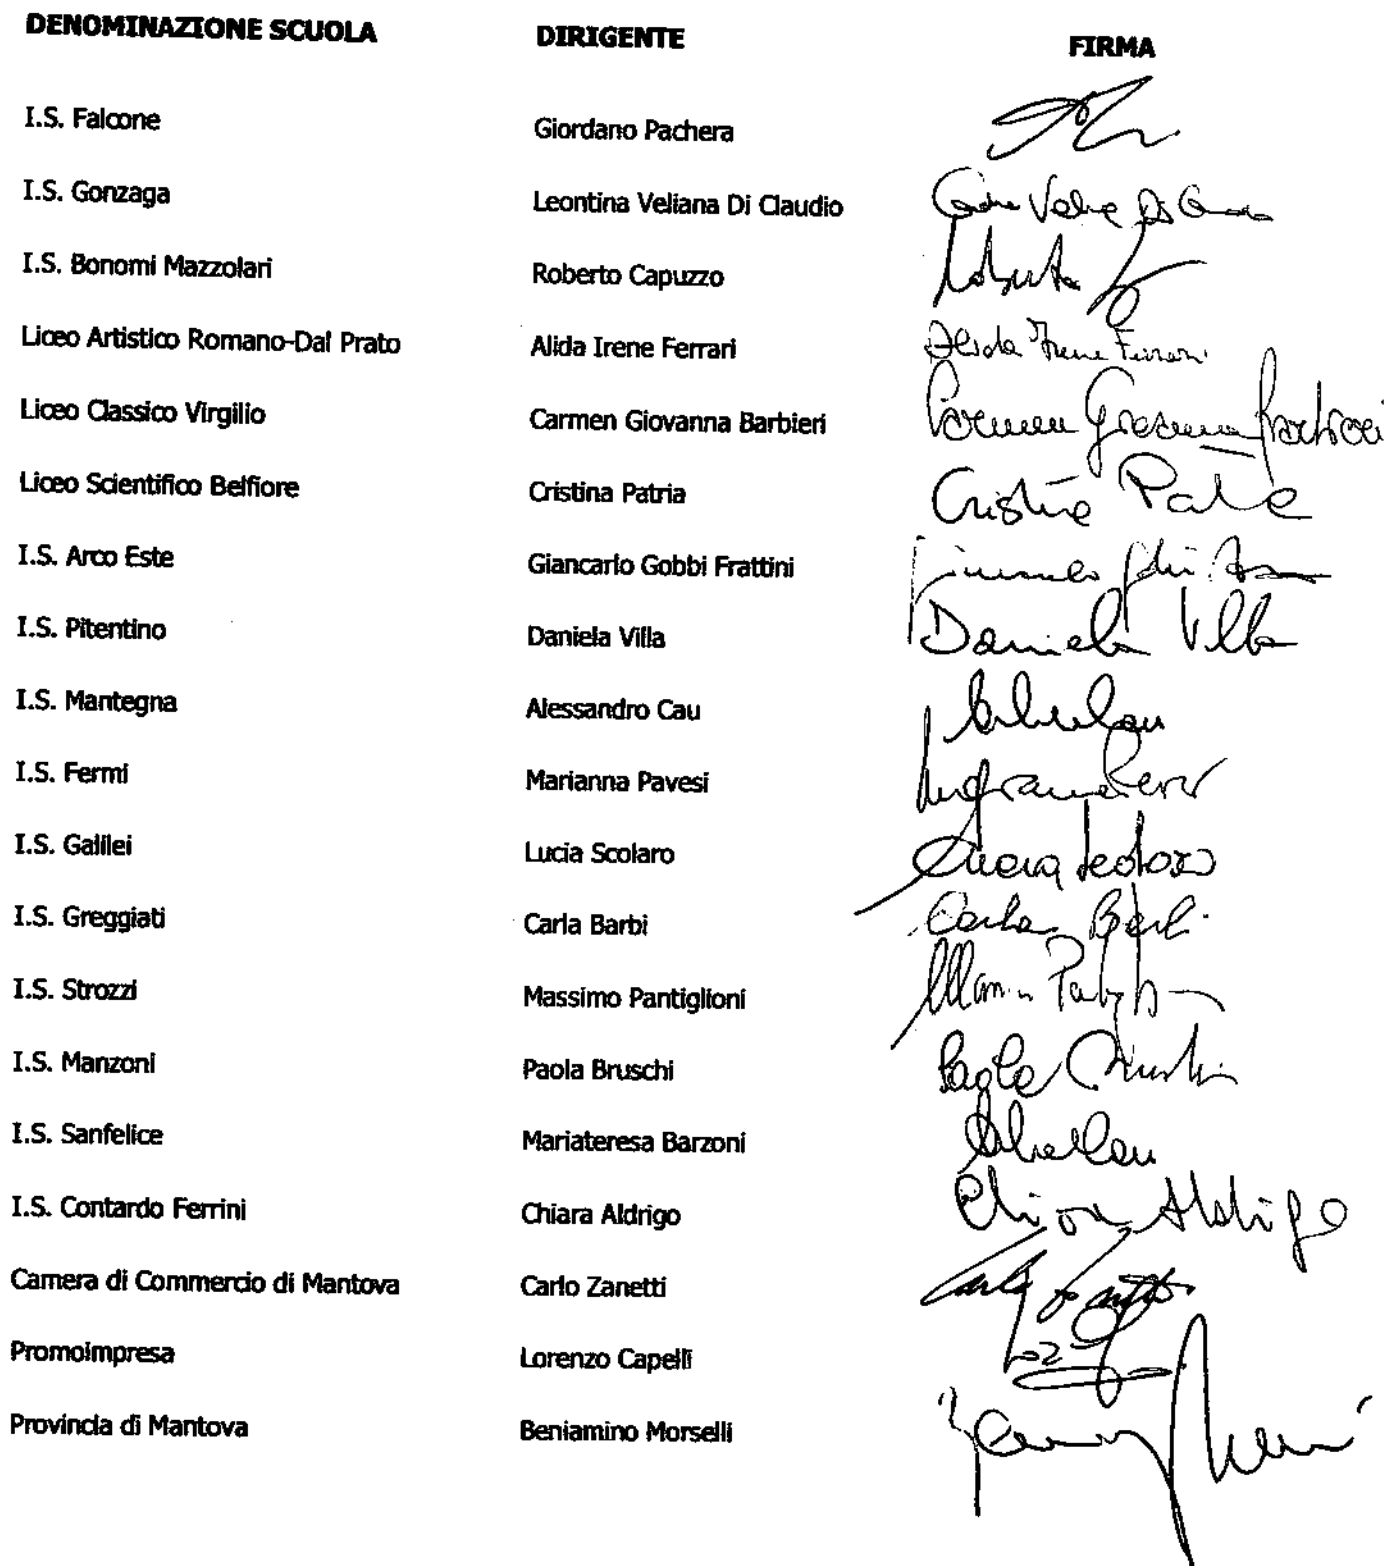 DENOMINAZIONE SCUOLA DIRIGENTE FIRMA
I.S. Falcone Giordano Pachera
I.S. Gonzaga Leontina Veliana Di Claudio
I.S. Bonomi Mazzolari Roberto Capuzzo Roberto
Liceo Artistico Romano-Dal Prato Alida Irene Ferrari Alida Irene Ferrari
Liceo Classico Virgilio Carmen Giovanna Barbieri Carmen Giovanna Barbieri
Liceo Scientifico Belfiore Cristina Patria Cristina Patria
I.S. Arco Este Giancarlo Gobbi Frattini
I.S. Pitentino Daniela Villa Daniela Villa
I.S. Mantegna Alessandro Cau
I.S. Fermi Marianna Pavesi
I.S. Galilei Lucia Scolaro
I.S. Greggiati Carla Barbi Carla Barbi
I.S. Strozzi Massimo Pantiglioni
I.S. Manzoni Paola Bruschi Paola Bruschi
I.S. Sanfelice Mariateresa Barzoni
I.S. Contardo Ferrini Chiara Aldrigo Chiara Aldrigo
Camera di Commercio di Mantova Carlo Zanetti Carlo Zanetti
Promoimpresa Lorenzo Capelli
Provincia di Mantova Beniamino Morselli